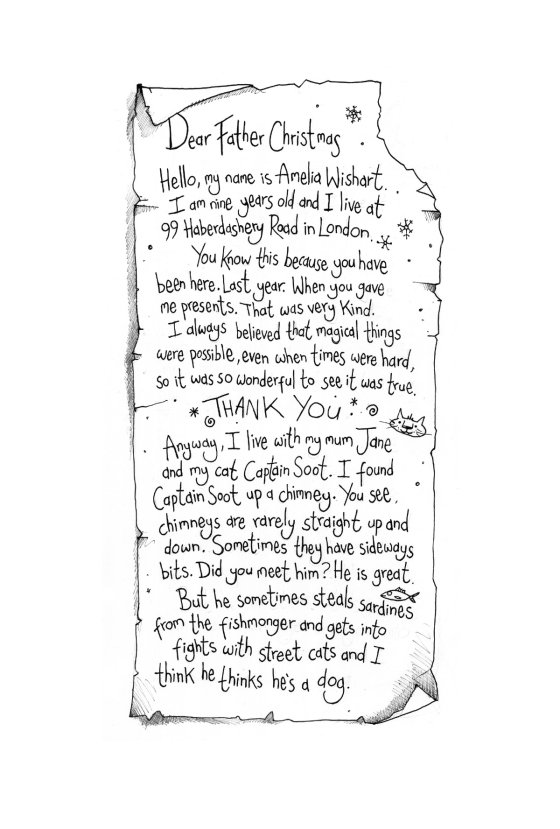 Dear Father Christmas
Hello, my name is Amelia Wishart.
I am nine years old and I live at
99 Haberdashery Road in London.
You know this because you have
been here. Last year. When you gave
me presents. That was very kind.
I always believed that magical things
were possible, even when times were hard,
so it was so wonderful to see it was true.
THANK YOU!
Anyway, I live with my mum Jane
and my cat Captain Soot. I found
Captain Soot up a chimney. You see,
chimneys are rarely straight up and
down. Sometimes they have sideways
bits. Did you meet him? He is great.
But he sometimes steals sardines
from the fishmonger and gets into
fights with street cats and I
think he thinks he's a dog.